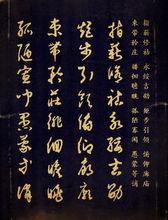 指薪修祜 永綏吉劭 矩步引領 俯仰廊廟
束帶矜莊 徘徊瞻眺 孤陋寡聞 愚蒙等誚
指薪修祜永綏吉劭
矩步引領俯仰廊廟
束帶矜莊徘徊瞻眺
孤陋寡聞愚蒙等誚